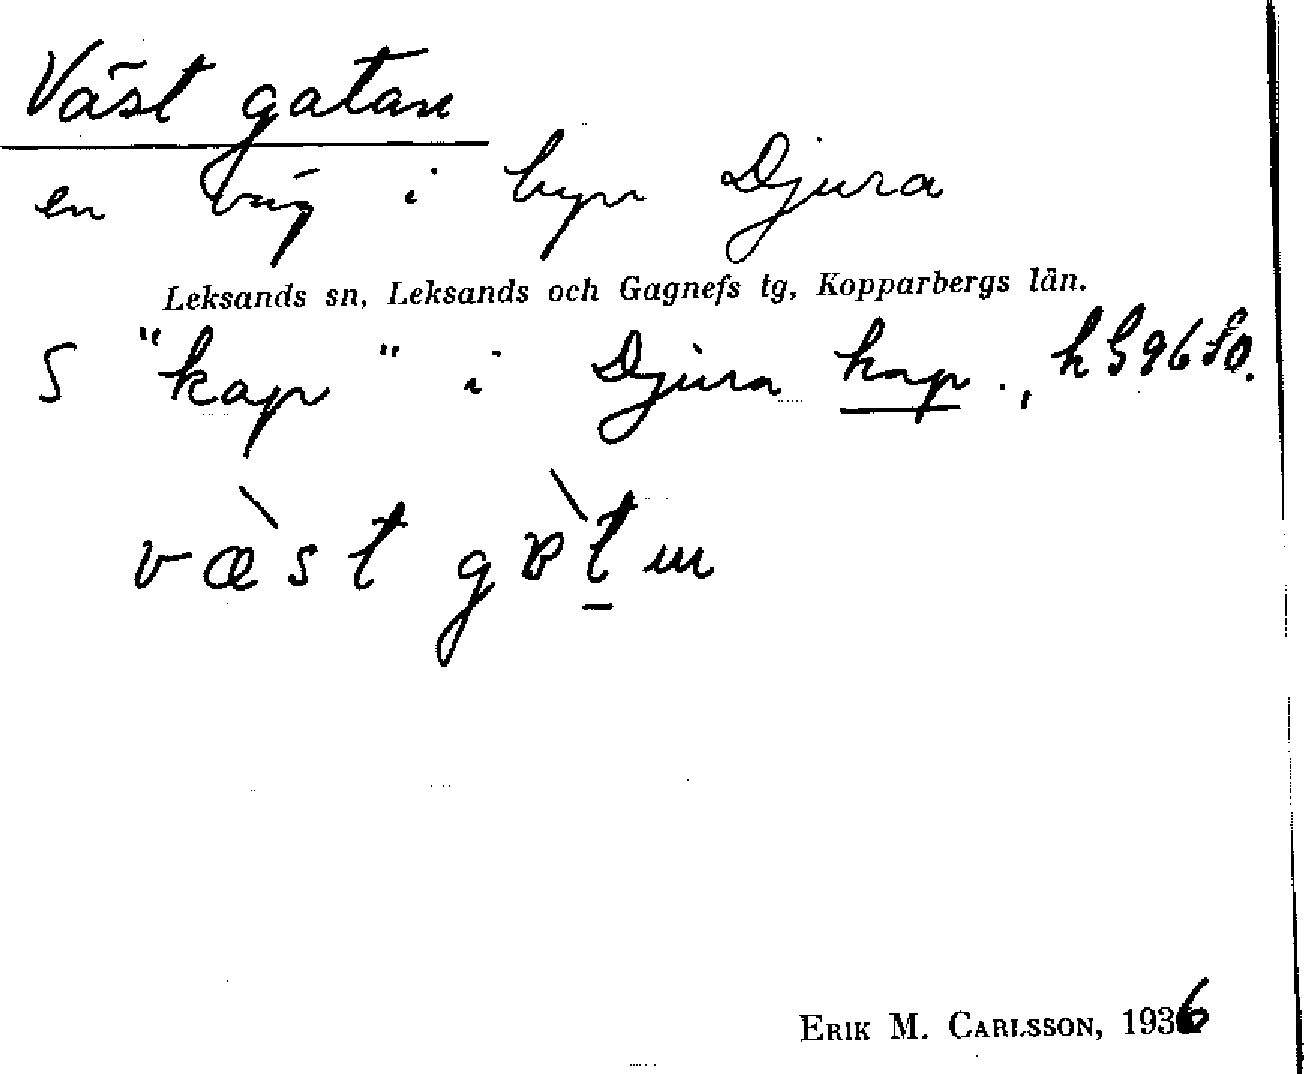 Västgatan
en väg i byn Djura
Leksands sn, Leksands och Gagnefs tg, Kopparbergs län.
S "kap" i Djura kap.,
væ̀st
ERIK M. CARLSSON, 1936